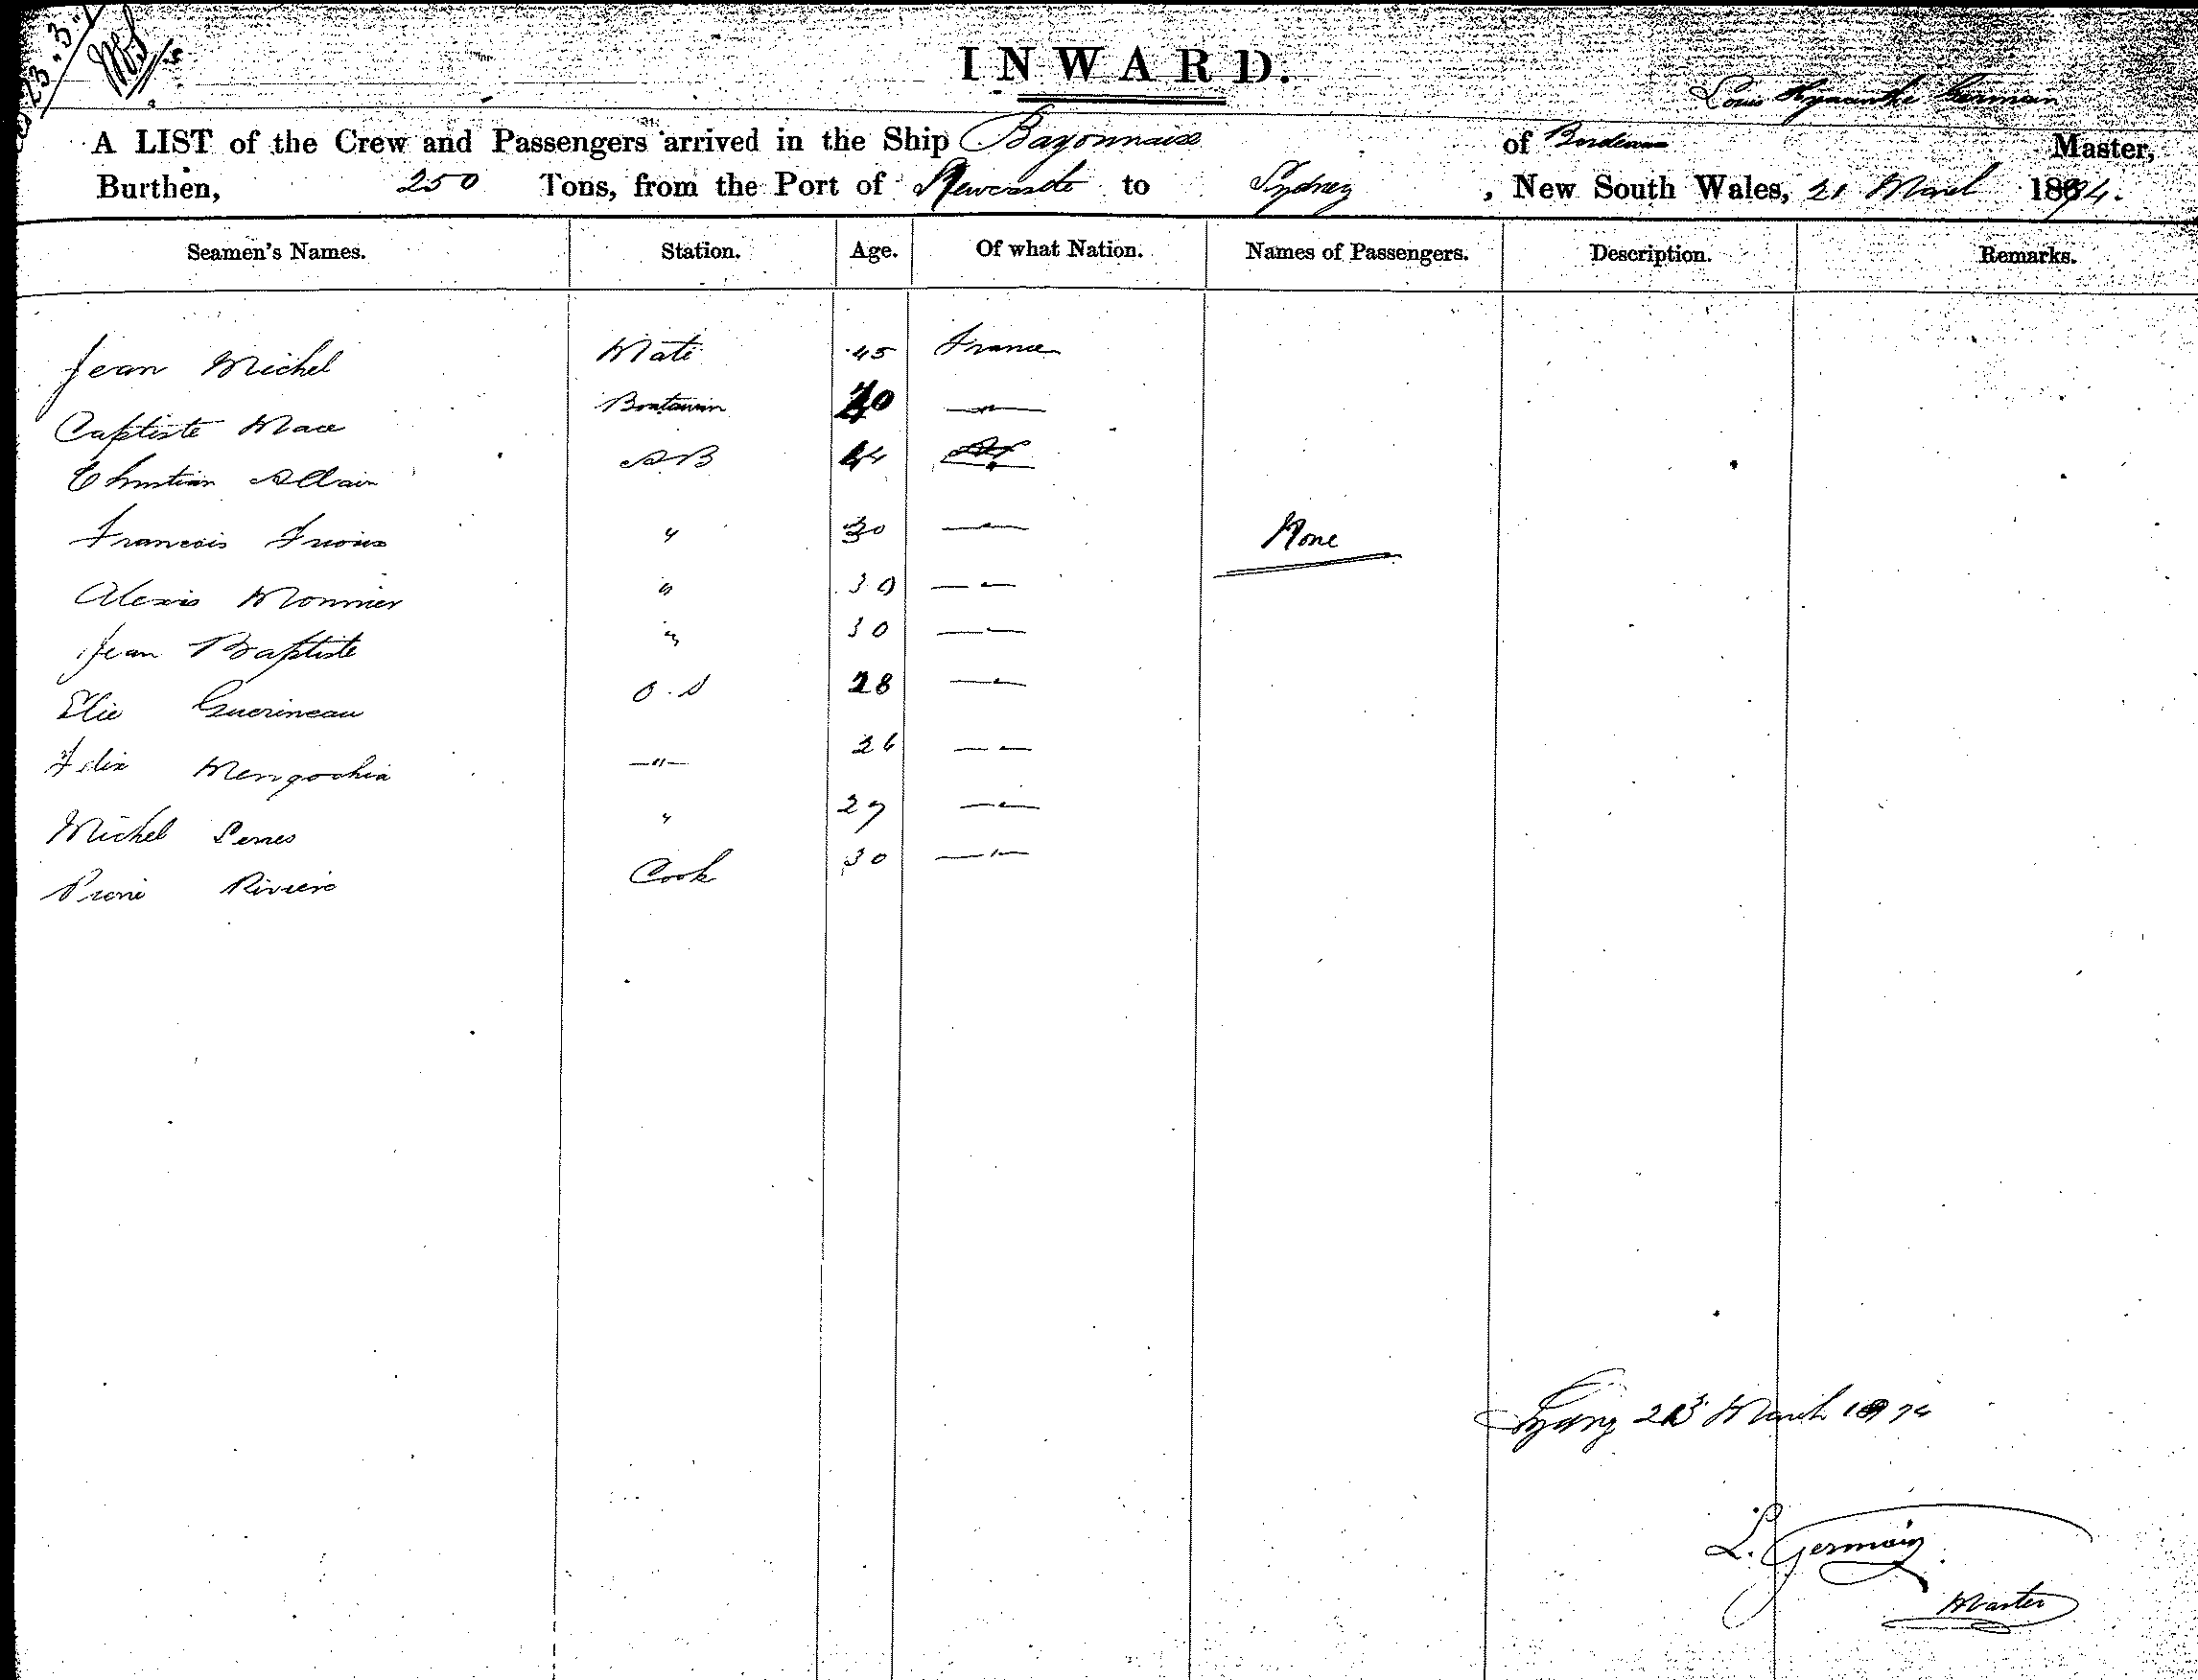 23.3.
INWARD.
Louis Hyacinthe German
A LIST of the Crew and Passengers arrived in the Ship Bayonnaise of Bordeaux Master,
Burthen, 250 Tons, from the Port of Newcastle to Sydney, New South Wales, 21 March 1874.
Seamen's Names. Station. Age. Of what Nation. Names of Passengers. Description. Remarks.
Jean Michel Mate 45 France
Baptiste Mace Boatswain 40 "
Christian Allain AB 44 "
Francois " 30 "
None
Alexis Monnier " 30 "
Jean Baptiste " 30 "
Elie Guerineau O.S 28 "
Felix Mengochia " 26 "
Michel " 27 "
Riviere Cook 30 "
Sydney 23 March 1874
L. Germain
Master